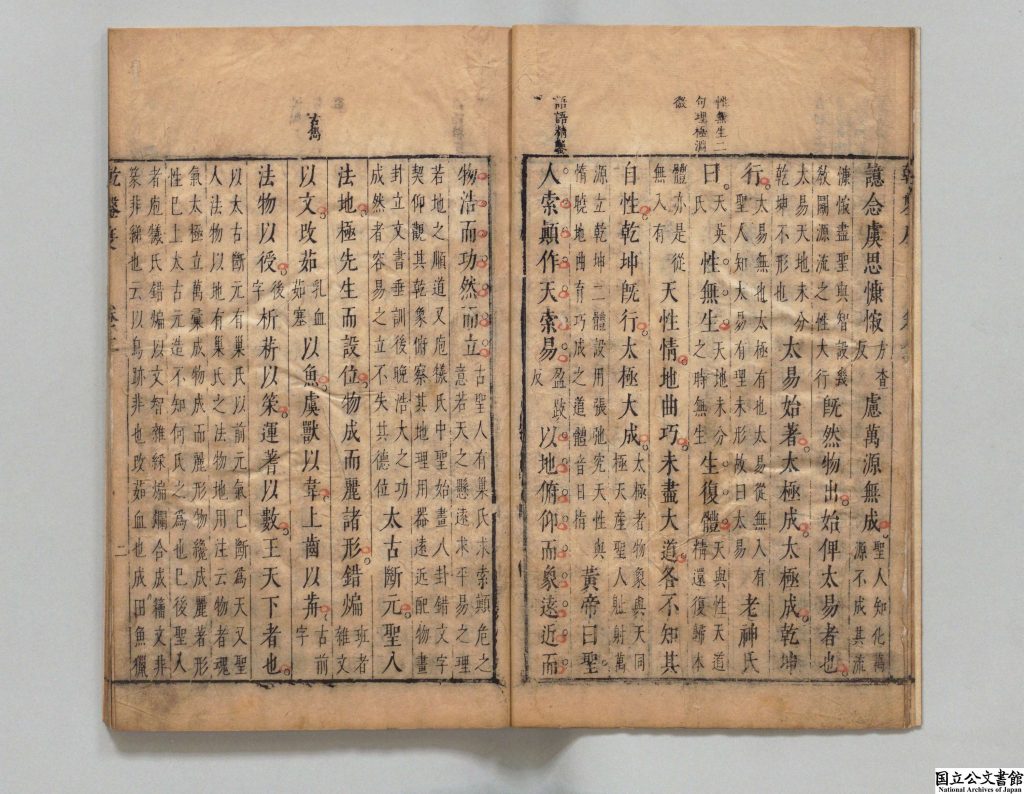 性無生二
句理極淵
微
語語精鑿
譩念虞思慷愾方杏反慮萬源無成聖人知化萬源不成其流
慷愾盡聖與智設幾敎關源流之性大行旣然物出始俾太易者也
太易天地未分乾坤不形也太易始著太極成太極成乾坤
行太易無也太極有也太易從無入有聖人知太易有理未形故曰太易老神氏
曰天英氏性無生天地未分之時無生生復體天與性天道精還復歸本
體亦是從無入有天性情地曲巧未盡大道各不知其
自性乾坤旣行太極大成太極者物象與天同極天産聖人耻射萬
源立乾坤二體設用張弛究天性與情曉地曲育巧成之道體音日惰黃帝曰聖
人索顚作天索易盈跂反以地俯仰而象遠近而
古雋
物浩而功然而立古聖人有巢氏求索顚危之意若天之懸遠求平易之理
若地之順道又庖犧氏中聖始畫八卦錯文文字契仰觀其乾象俯察其地理用器遠近配物畫
卦立文書垂訓後晚浩大之功成然者容易之立不失其德位太古斷元聖人
法地極先生而設位物成而麗諸形錯煸班者雜文
以文改茹乳血茹塞以魚虞獸以韋上齒以古前字
法物以授後字析斨以策運蓍以數王天下者也
以太古斷元有巢氏以前元氣已斷爲天又聖人法物以地有巢氏之法物地用注云物者魂
氣太極立萬彙成物成而麗形物纔成麗著形性已上太古元造不知何氏之爲也已後聖人
者庖犧氏錯煸以文智雜綵煸斕合成籀文非篆非繇也云以鳥跡非也攺茹血也成田魚獵
二
国立公文書館
National Archives of Japan